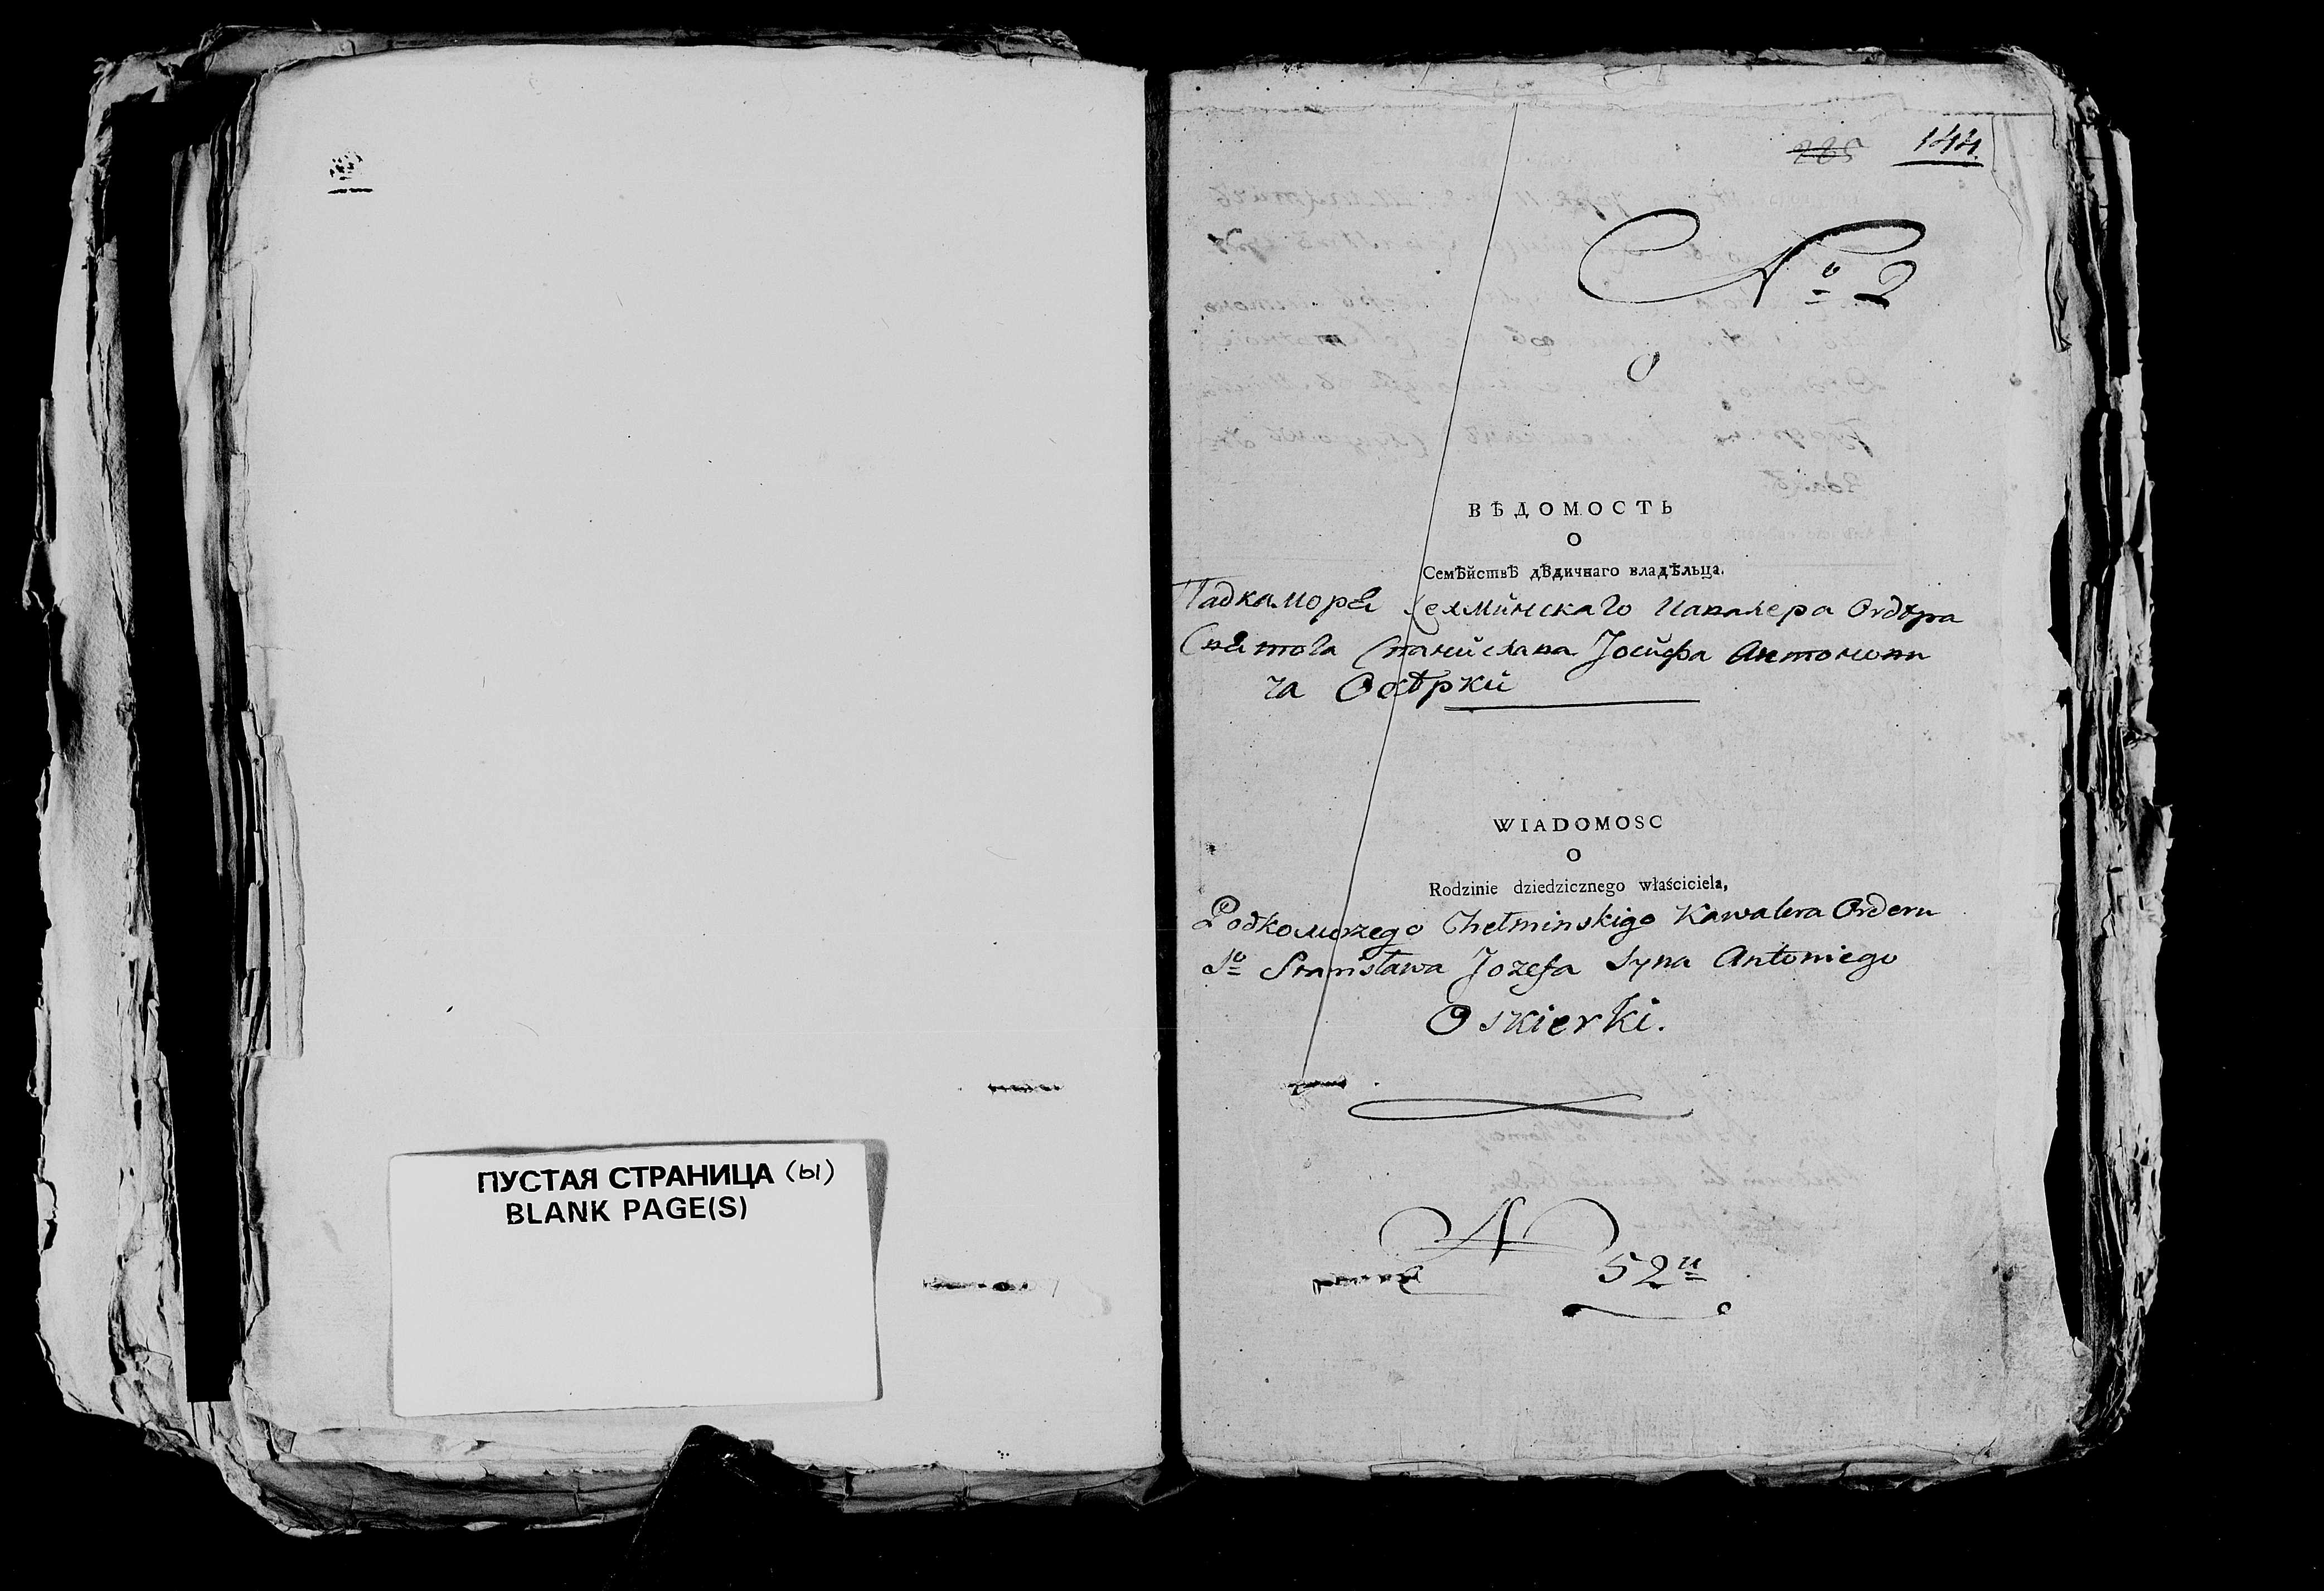 ПУСТАЯ СТРАНИЦА (ы)
BLANK PAGE(S)
144.
№ 2
ВѢДОМОСТЬ
О
Семѣйствѣ дѣдичнаго владѣльца.
Падкаморя Хелминскаго Кавалера Ордѣра
Святога Станислава Іосифа Антонови
ча Оскѣрки
WIADOMOSC
O
Rodzinie dziedzicznego właściciela,
Podkomorzego Chełminskigo Kawalera Orderu
So Stanisława Jozefa Syna Antoniego
Oskierki.
N 52u